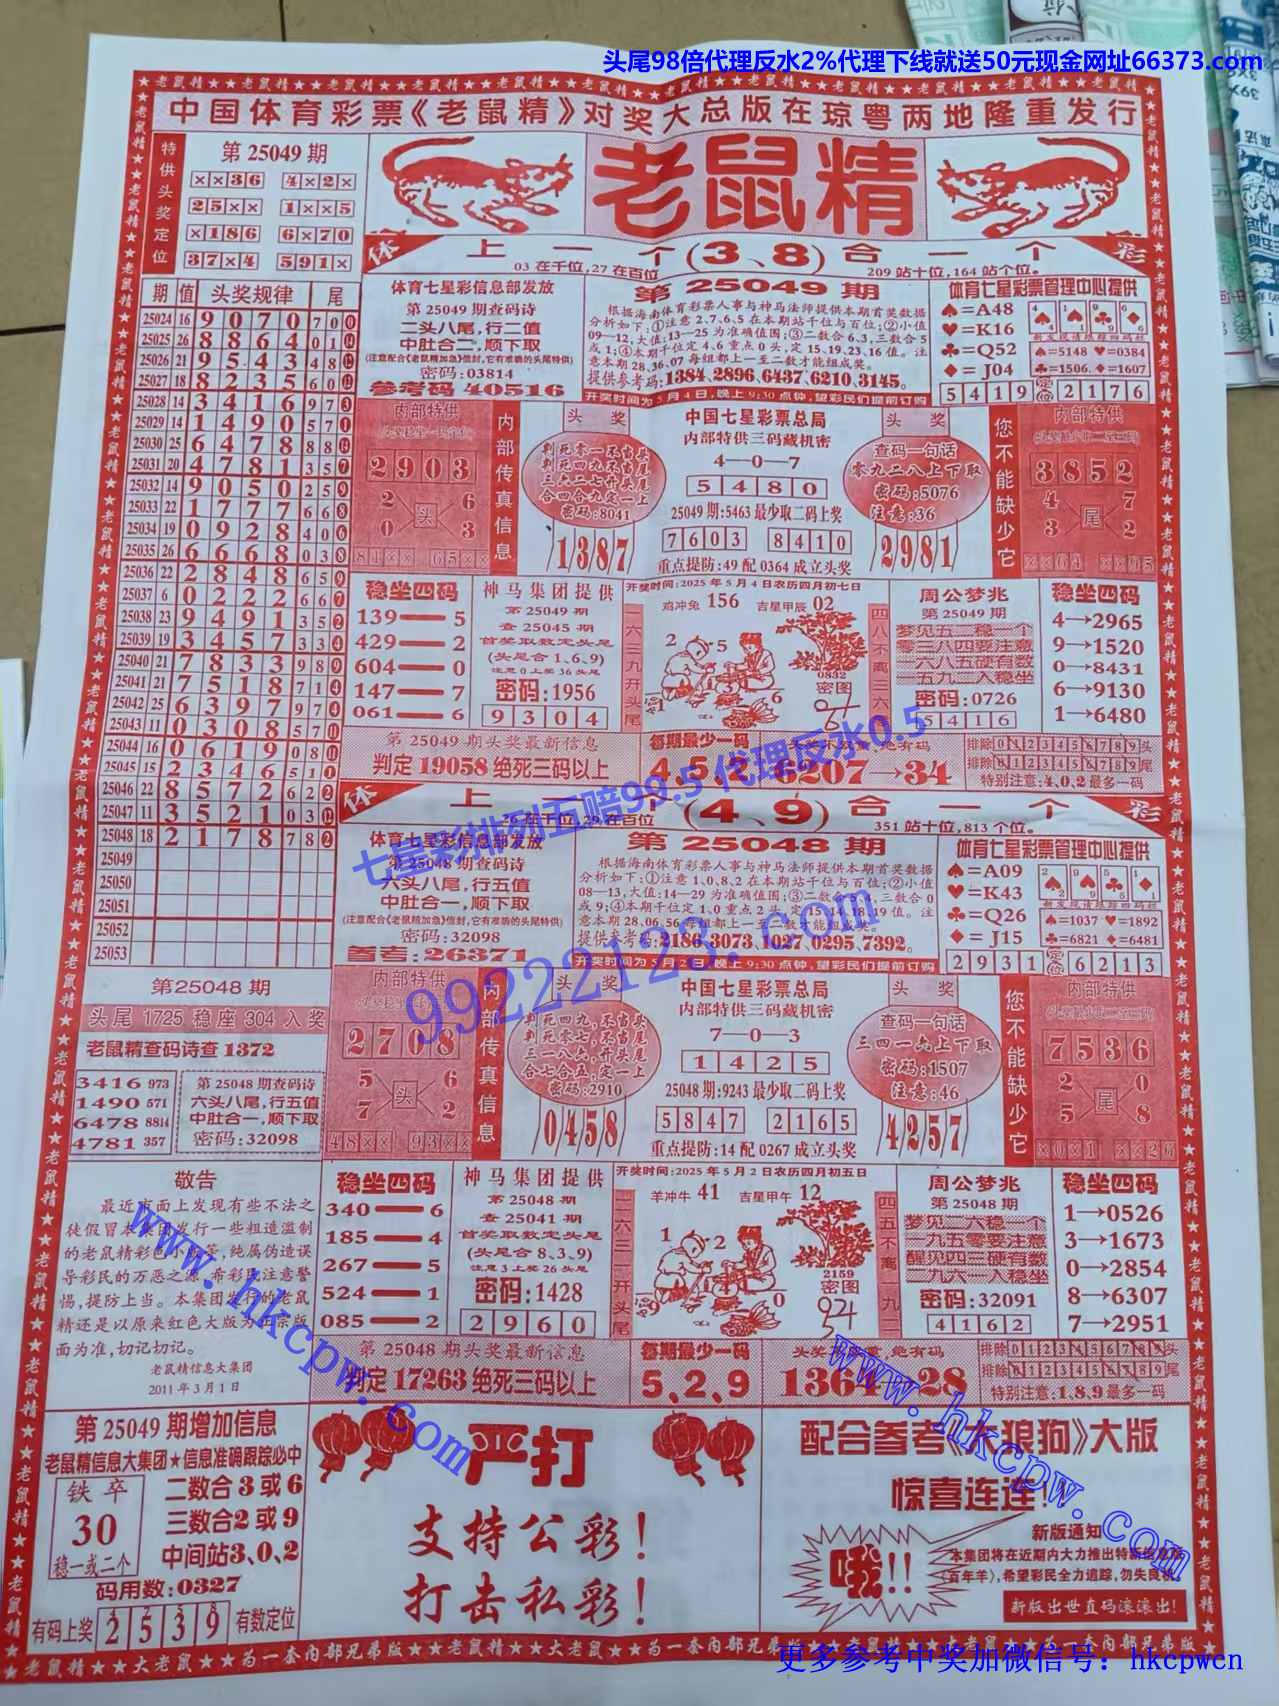 头尾98倍代理反水2%代理下线就送50元现金网址66373.com
中国体育彩票《老鼠精》对奖大总版在琼粤两地隆重发行
特供头奖定位
第 25049 期
××36 4×2×
25×× 1××5
×186 6×70
37×4 591×
老鼠精
体
上一个(3、8)合一个
彩
03 在千位,27 在百位
209 站十位,164 站个位。
期 值 头奖规律 尾
25024 16 9 0 7 0 7 0
25025 26 8 8 6 4 0 1
25026 21 9 5 4 3 4 8
25027 18 8 2 3 5 6 0
25028 14 3 4 1 6 9 7 3
25029 14 1 4 9 0 5 7 1
25030 25 6 4 7 8 8 8
25031 20 4 7 8 1 3 5 7
25032 14 9 0 5 0 2 5 9
25033 22 1 7 7 7 6 6 8
25034 19 0 9 2 8 4 0 6
25035 26 6 6 6 8 0 3 8
25036 22 2 8 4 8 6 5 9
25037 6 0 2 2 2 6 6 7
25038 23 9 4 9 1 3 5 2
25039 19 3 4 5 7 3 3 4
25040 21 7 8 3 3 9 8 9
25041 21 7 5 1 8 7 1 4
25042 25 6 3 9 7 9 7 4
25043 11 0 3 0 8 5 7
25044 16 0 6 1 9 0 8
25045 15 2 3 4 6 5 1
25046 22 8 5 7 2 6 2 2
25047 11 3 5 2 1 0 3
25048 18 2 1 7 8 7 8 2
25049
25050
25051
25052
25053
体育七星彩信息部发放
第 25049 期查码诗
二头八尾,行二值
中肚合二,顺下取
(注意配合《老鼠精加急》信封,它有准确的头尾特供)
密码:03814
参考码 40516
第 25049 期
根据海南体育彩票人事与神马法师提供本期首奖数据
分析如下:①注意 2.7.6.5 在本期站千位与百位;②小值
09—12,大值:13—25 为准确值围;③二数合 6.3,三数合 5
或 1;④本期千位定 4.6 重点 0 头,定 15.19.23.16 值。注
意本期 28、36、07 每组都上一至二数才能组成奖。
提供参考码:1384、2896、6437、6210、3145。
开奖时间为 5 月 4 日,晚上 9:30 点钟,望彩民们提前订购
体育七星彩票管理中心提供
♠=A48
♥=K16
♣=Q52
♦=J04
♠=5148 ♥=0384
♣=1506 ♦=1607
5419 定位 2176
内部特供
2903
2 6
头
0 3
84×× 65××
内部传真信息
头 奖
判死零一不当头
判死四九不当尾
三六二七开头尾
合四合九定一上
密码:8041
1387
中国七星彩票总局
内部特供三码藏机密
4—0—7
5480
25049 期:5463 最少取二码上奖
7603 8410
重点提防:49 配 0364 成立头奖
头 奖
查码一句话
零九二八上下取
密码:5076
注意:36
2981
您不能缺少它
内部特供
3852
4 7
尾
3 2
××64 ××05
稳坐四码
139——5
429——2
604——0
147——7
061——6
神马集团提供
第 25049 期
查 25045 期
首奖取数定头尾
(头尾合 1、6、9)
注意 0 上奖 36 头尾
密码:1956
9304
开奖时间:2025 年 5 月 4 日农历四月初七日
鸡冲兔 156 吉星甲辰 02
一六三九开头尾
2 5
1 6
0832
密图
四八不离二六
周公梦兆
第 25049 期
梦见五二稳一个
零三八四要注意
一六八五硬有数
一五九二入稳坐
密码:0726
5416
稳坐四码
4→2965
9→1520
0→8431
6→9130
1→6480
第 25049 期头奖最新信息
判定 19058 绝死三码以上
每期最少一码
4,5,2
6207→34
排除 0 1 2 3 4 5 6 7 8 9 头
排除 0 1 2 3 4 5 6 7 8 9 尾
特别注意:4、0、2 最多一码
七星彩排列五赔99.5 代理反水0.5
99222123.com
体
上一个(4、9)合一个
彩
26 在千位,29 在百位
351 站十位,813 个位。
体育七星彩信息部发放
第 25048 期查码诗
六头八尾,行五值
中肚合一,顺下取
(注意配合《老鼠精加急》信封,它有准确的头尾特供)
密码:32098
参考:26371
第 25048 期
根据海南体育彩票人事与神马法师提供本期首奖数据
分析如下:①注意 1、0、8、2 在本期站千位与百位;②小值
08—13,大值:14—29 为准确值围;③二数合 三数合 0
或 9;④本期千位定 1、0 重点 2 头,定 15、14、18、19 值。注
意本期 28、06、56 每组都上一至二数才能组成奖。
提供参考码:2186、3073、1027、0295、7392。
开奖时间为 5 月 2 日,晚上 9:30 点钟,望彩民们提前订购
体育七星彩票管理中心提供
♠=A09
♥=K43
♣=Q26
♦=J15
♠=1037 ♥=1892
♣=6821 ♦=6481
2931 定位 6213
第25048 期
头尾 1725 稳座 304 入奖
老鼠精查码诗查 1372
3416 973
1490 571
6478 8814
4781 357
第 25048 期查码诗
六头八尾,行五值
中肚合一,顺下取
密码:32098
内部特供
2708
5 6
头
7 2
48×× 93××
内部传真信息
头 奖
判死四九,不当头
判死零七,不当尾
三一八六,开头尾
合七合五,定一上
密码:2910
0458
中国七星彩票总局
内部特供三码藏机密
7—0—3
1425
25048 期:9243 最少取二码上奖
5847 2165
重点提防:14 配 0267 成立头奖
头 奖
查码一句话
三四一六上下取
密码:1507
注意:46
4257
您不能缺少它
内部特供
7536
2 0
尾
5 8
××01 ××26
敬告
最近市面上发现有些不法之
徒假冒本集团发行一些粗造滥制
的老鼠精彩色小版等,纯属伪造误
导彩民的万恶之源,希彩民注意警
惕,提防上当。本集团发行的老鼠
精还是以原来红色大版为正宗版
面为准,切记切记。
老鼠精信息大集团
2011 年 3 月 1 日
稳坐四码
340——6
185——4
267——5
524——1
085——2
神马集团提供
第 25048 期
查 25041 期
首奖取数定头尾
(头尾合 8、3、9)
注意 3 上奖 26 头尾
密码:1428
2960
开奖时间:2025 年 5 月 2 日农历四月初五日
羊冲牛 41 吉星甲午 12
二六三一开头尾
1 2
9 4 0
2159
密图
四五不离一九
周公梦兆
第 25048 期
梦见二六稳一个
一九五零要注意
醒见四三硬有数
一九六一入稳坐
密码:32091
4162
稳坐四码
1→0526
3→1673
0→2854
8→6307
7→2951
第 25048 期头奖最新信息
判定 17263 绝死三码以上
每期最少一码
5,2,9
1364 28
排除 0 1 2 3 4 5 6 7 8 9 头
排除 0 1 2 3 4 5 6 7 8 9 尾
特别注意:1、8、9 最多一码
www.hkcpw.com
www.hkcpw.com
第 25049 期增加信息
老鼠精信息大集团★信息准确跟踪必中
铁卒
30
稳一或二个
二数合 3 或 6
三数合 2 或 9
中间站3、0、2
码用数:0327
有码上奖 2539 有数定位
严打
支持公彩!
打击私彩!
配合参考《大狼狗》大版
惊喜连连!
哦!!
新版通知
本集团将在近期内大力推出特新信息版
《百年羊》,希望彩民全力追踪,勿失良机。
新版出世直码滚滚出!
★★老鼠精★★大老鼠★★为一套内部兄弟版★★老鼠精★★大老鼠★★为一套内部兄弟版
更多参考中奖加微信号：hkcpwcn